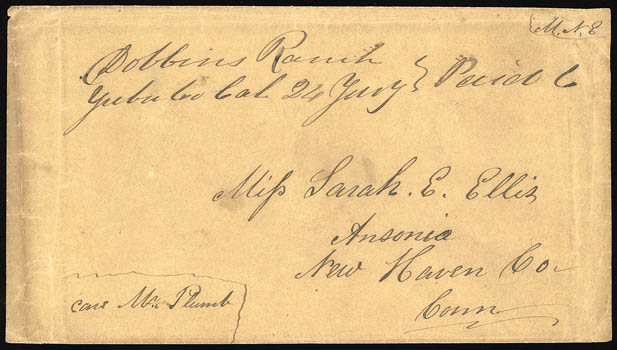 M. N. E
Dobbins Ranch
Yuba Co Cal 24 Jany } Paid 6
Miss Sarah. E. Ellis
Ansonia
New Haven Co
Conn
care Mr. Plumb